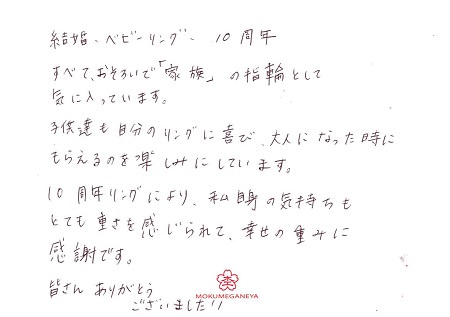 結婚、ベビーリング、10周年
すべて、おそろいで「家族」の指輪として
気に入っています。
子供達も自分のリングに喜び、大人になった時に
もらえるのを楽しみにしています。
10周年リングにより、私自身の気持ちも
とても重さを感じられて、幸せの重みに
感謝です。
皆さん ありがとう
ございました!!
MOKUMEGANEYA